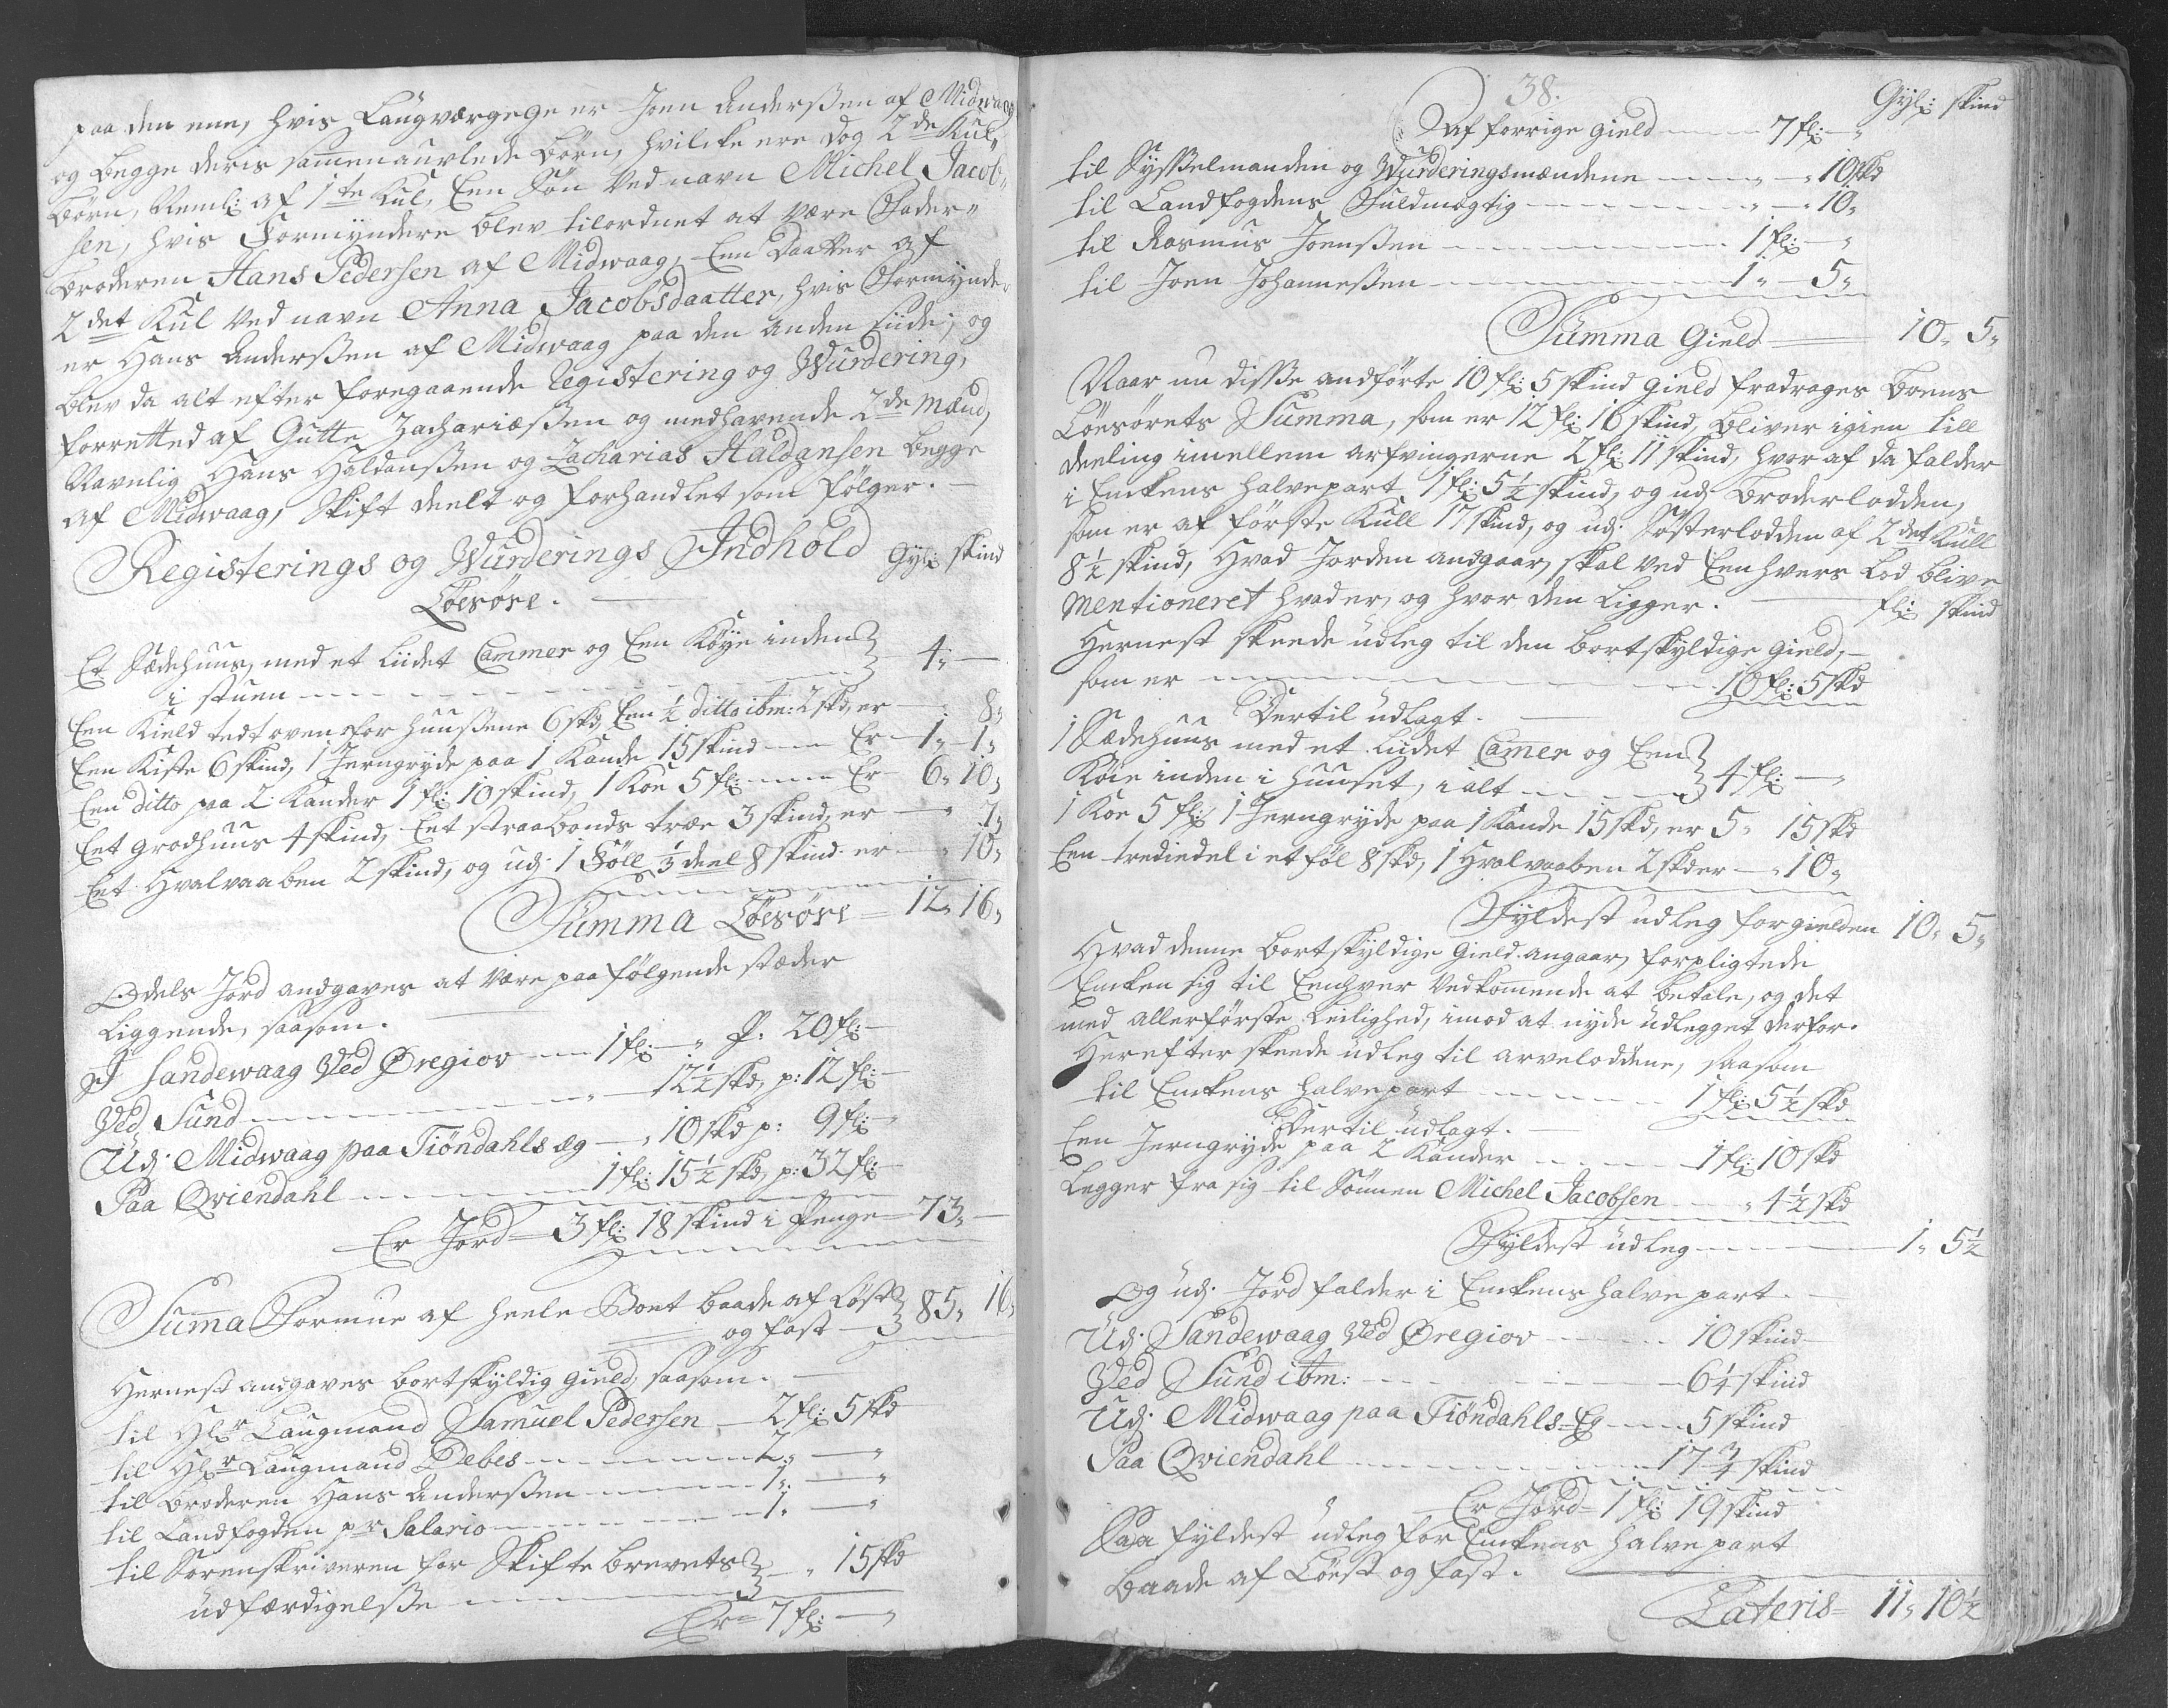 paa den eene, hvis Laugværgege er Joen Anderßen af Midwaag
og begge deris sammenauvlede Børn, hvilcke ere dog 2de Kul,,
Børn, Neml: af 1te Kul, Een Søn ved navn Michel Jacob,,
sen, hvis Formyndere blev tilordnet at være Fader,,
broderen Hans Pedersen af Midwaag, Een Daatter af
2det Kul ved navn Anna Jacobsdaatter, hvis Formynder
er Hans Anderßen af Midwaag paa den anden Siide; og
blev da alt efter foregaaende Registering og Wurdering,
forretted af Gutte Zachariæßen og medhavende 2de Mænd,
Navnlig Hans Haldanßen og Zacharias Haldansen begge
af Midwaag, Skift deelt og forhandlet som følger. —
Registerings og Wurderings Indhold Gyl: skind
Løesøre. —
Et Sædehuus, med et liidet Cammer og Een Køye inden
i stuen — 4,, —
Een Kield tedt oven for huußene 6 skd, Een ½ ditto ibm: 2 skd, er — 8,,
Een Kiste 6 skind, 1 Jerngryde paa 1 Kande 15 skind — Er — 1,, 1,,
Een ditto paa 2 Kander 1 fl: 10 skind, 1 Koe 5 fl: — Er — 6,, 10,,
Eet grodhuus 4 skind, Eet straabonds træe 3 skind, er — ,, 7,,
Eet Hvalvaaben 2 skind, og udj 1 Føll ⅓ deel 8 skind er — ,, 10,,
Summa Løesøre = 12,, 16,,
Odels Jord andgaves at være paa følgende stæder
liggende, saasom.
I Sandewaag ved Øregiov — 1 fl: — ,, P: 20 fl: —
Ved Sund — ,, — 12½ skd, p: 12 fl: —
Udj Midwaag paa Tiøndahls æg — ,, 10 skd p: 9 fl: —
Paa Qviendahl — 1 fl: 15½ skd, p: 32 fl: —
Er Jord — 3 fl: 18 skind i Penge — 73,, —
Summa Formue af heele Boet baade af Løst
og fast — 85,, 16,,
Hernest andgaves bortskyldig gield, saasom. —
til Hlr Laugmand Samuel Pedersen — 2 fl: 5 skd
til Hlr Laugmand Debes — 2,, — ,,
til broderen Hans Anderßen — 1,, — ,,
til Landfogden pr Salario — 1,, — ,,
til Sorenskriveren for Skifte brevets
udfærdigelße — ,, 15 skd
Er = 7 fl: — ,,
38.
Gyl: skind
Af forrige gield — 7 fl: — ,,
til Syßelmanden og Wurderingsmændene — ,, 10 skd
til Landfogdens Fuldmægtig — ,, — 10,,
til Rasmus Joenßen — 1 fl: — ,,
til Joen Johanneßen — 1,, — 5,,
Summa Gield — 10,, 5,,
Naar nu disße andførte 10 fl: 5 skind gield fradrages Boens
Løesørets Summa, som er 12 fl: 16 skind, bliver igien till
deeling imellem arfvingerne 2 fl: 11 skind, hvor af da falder
i Enckens halvepart 1 fl: 5½ skind, og udj broderlodden,
som er af første Kull 17 skind, og udj Søsterlodden af 2det Kull
8½ skind, Hvad Jorden andgaar, skal ved Eenhvers Lod blive
mentioneret hvad er, og hvor den ligger. — fl: skind
Hernest skeede udleg til den bortskyldige gield, —
som er — 10 fl: 5 skd
Dertil udlagt. —
1 Sædehuus med et liidet Camer og Een
Køie inden i huuset, i alt — 4 fl: — ,,
1 Koe 5 fl: 1 Jerngryde paa 1 Kande 15 skd, er 5,, 15 skd
Een trediedel i et føl 8 skd, 1 Hvalvaaben 2 skd er — ,, 10,,
Fyldest udleg for gielden 10,, 5,,
Hvad denne bortskyldige gield angaar, forpligtede
Encken sig til Eenhver vedkomende at betale, og det
med allerførste Leilighed, imod at nyde udlegget derfor.
Herefter skeede udleg til arveloddene, saasom
til Enckens halvepart — 1 fl: 5½ skd
Dertil udlagt. —
Een Jerngryde paa 2 Kander — 1 fl: 10 skd
Legger fra sig til Sønnen Michel Jacobsen — ,, 4½ skd
Fyldest udleg — 1,, 5½
Og udj Jord falder i Enckens halve part. —
Udj Sandewaag ved Øregiov — 10 skind
Ved Sund ibm: — 6¼ skind
Udj Midwaag paa Tiøndahls=Eg — 5 skind
Paa Qviendahl — 17¾ skind
Er Jord = 1 fl: 19 skind
Saa fyldest udleg for Enckens halve part
baade af Løest og fast. —
Lateris = 11,, 10½